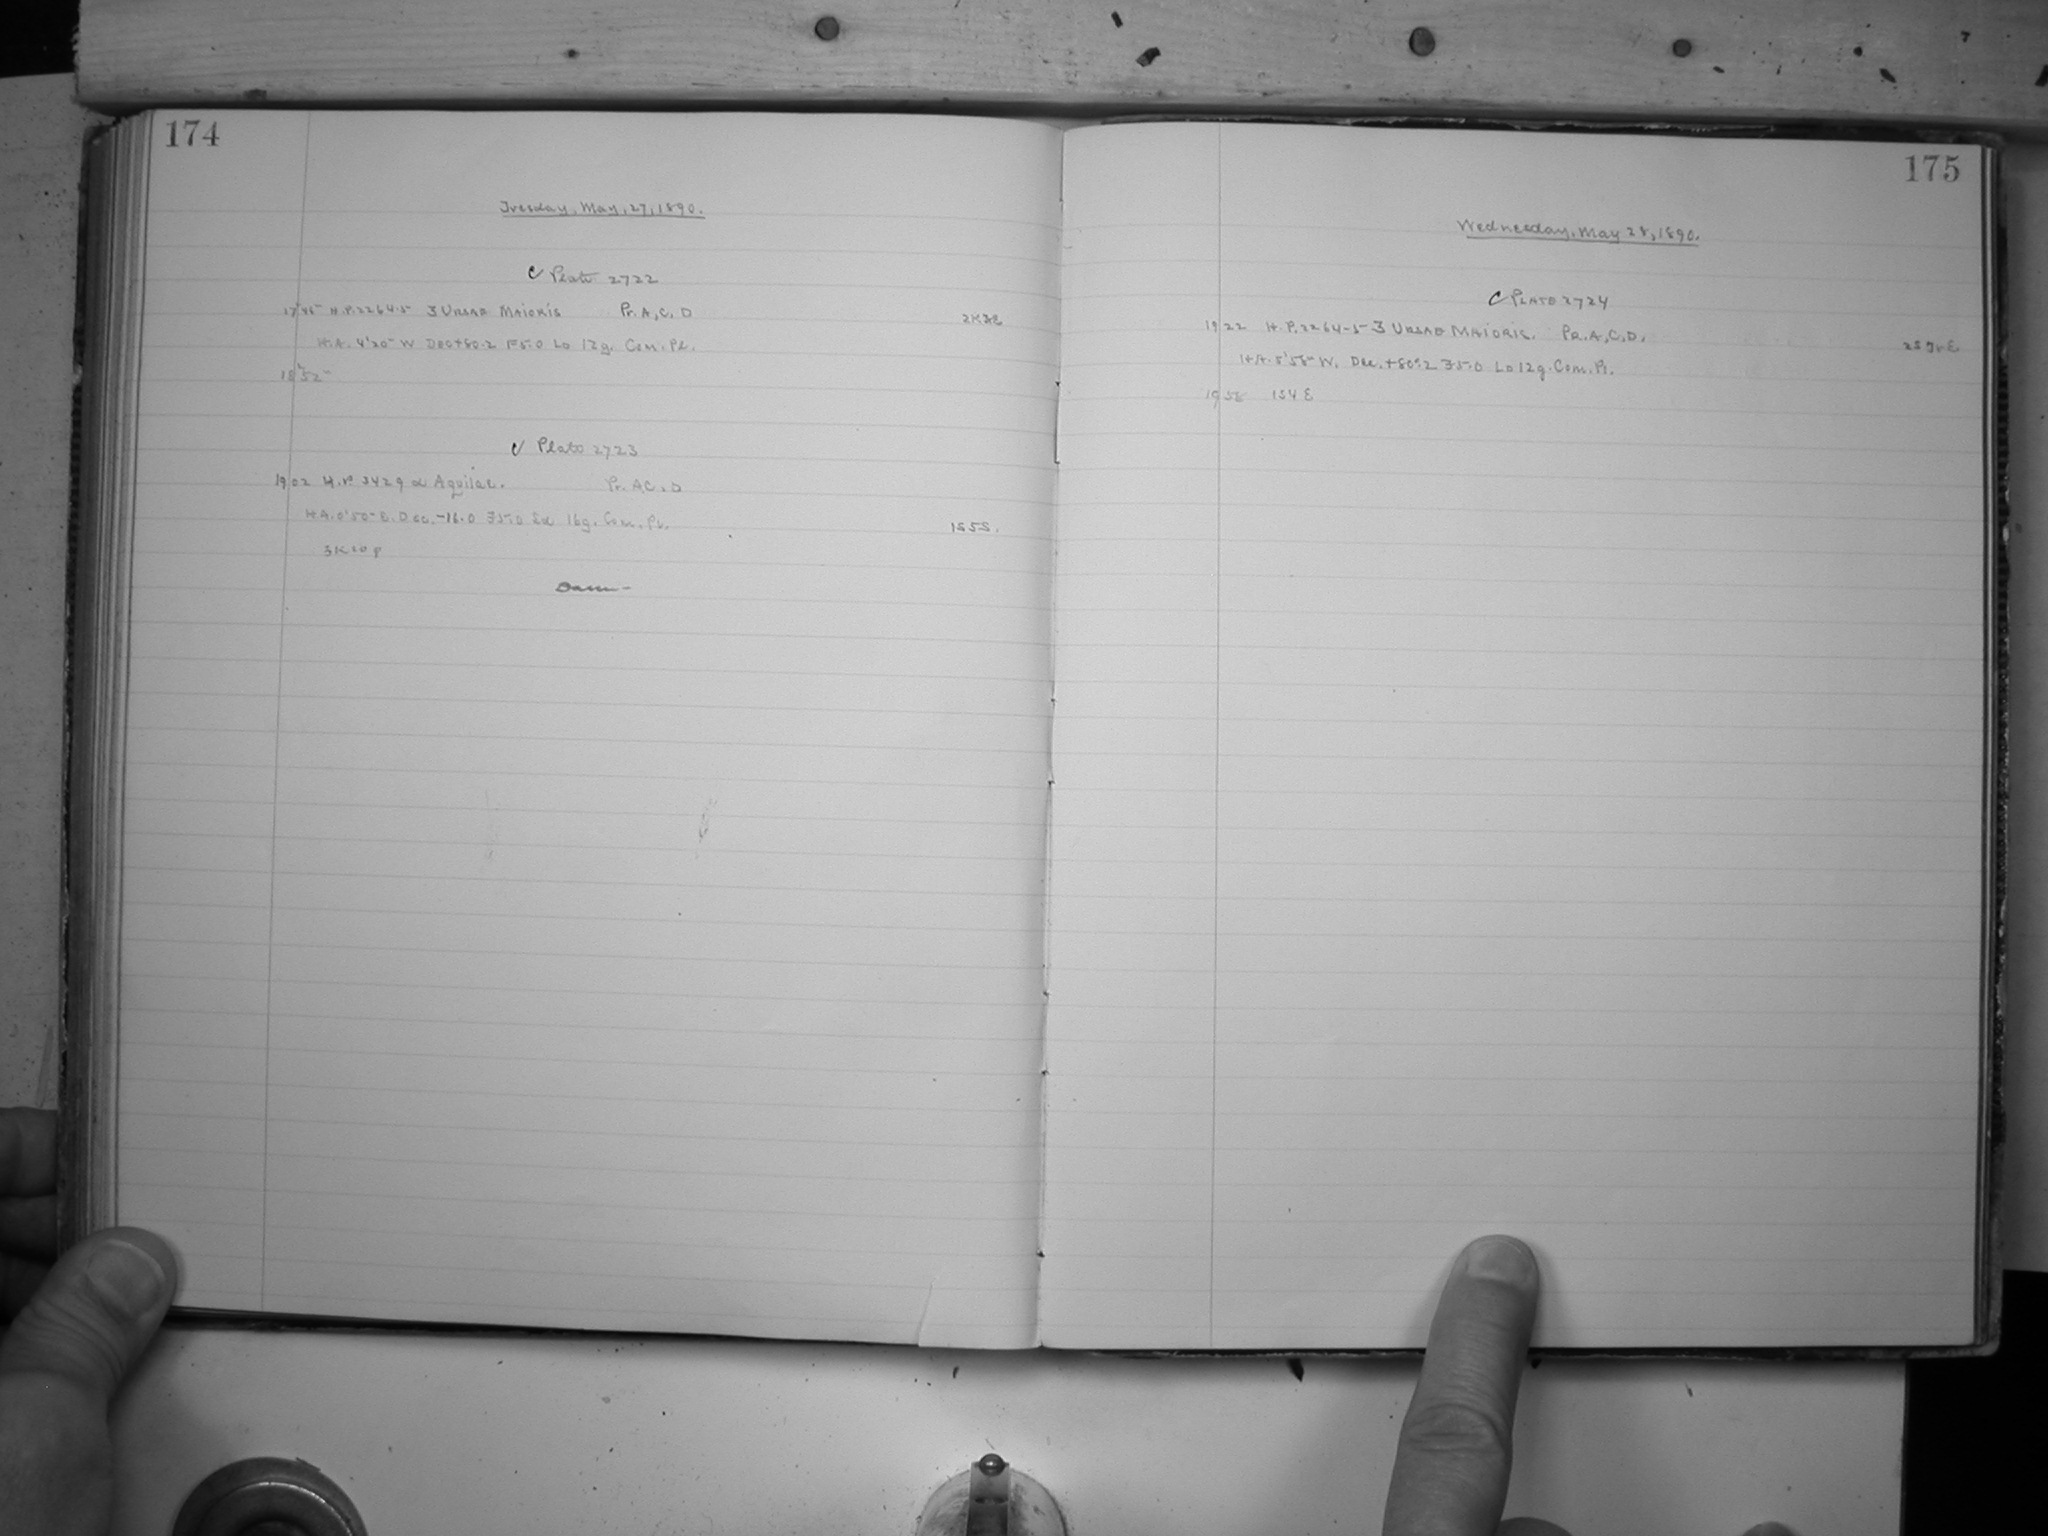 174
Tuesday, May, 27, 1890.
C Plate 2722
17 45 H.P. 2264-5 3 URSAE MAIORIS Pr. A, C, D
H.A. 4 20 W Dec +80.2 F5.0 Lo 12g. Com. Pl.
18 52
C Plate 2723
19 02 H.P 3429 α Aquilae. Pr. A C, D
H.A. 0 50 E. Dec. -16.0 F5.0 16g. Com. Pl. 1S5S.
3K20P
Dawn
175
Wednesday, May 28, 1890.
C PLATE 2724
19 22 H.P. 2264-5 3 URSAE MAIORIS. PR. A, C, D,
H.A. 5 58 W. Dec. +80°.2 F5.0 Lo 12g. Com. Pl.
19 58 1S4E